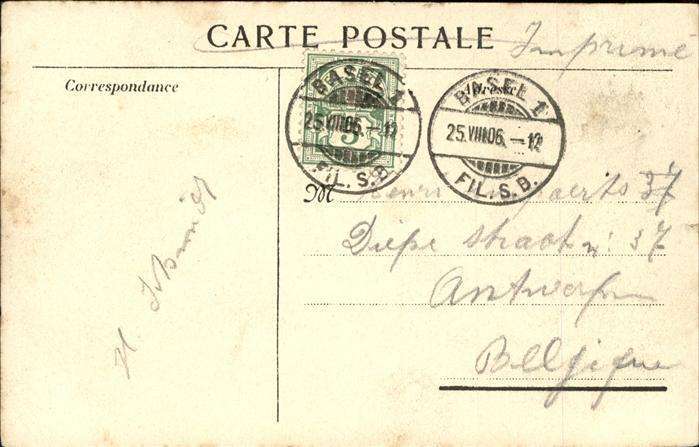 CARTE POSTALE Imprimé
Correspondance
BASEL 1
25.VIII.06.-12
FIL.S.B.
5
BASEL 1
25.VIII.06.-12
FIL.S.B.
M Henri 37
Diepe straat nº 37
Antwerpen
Belgique
H. Schmidt